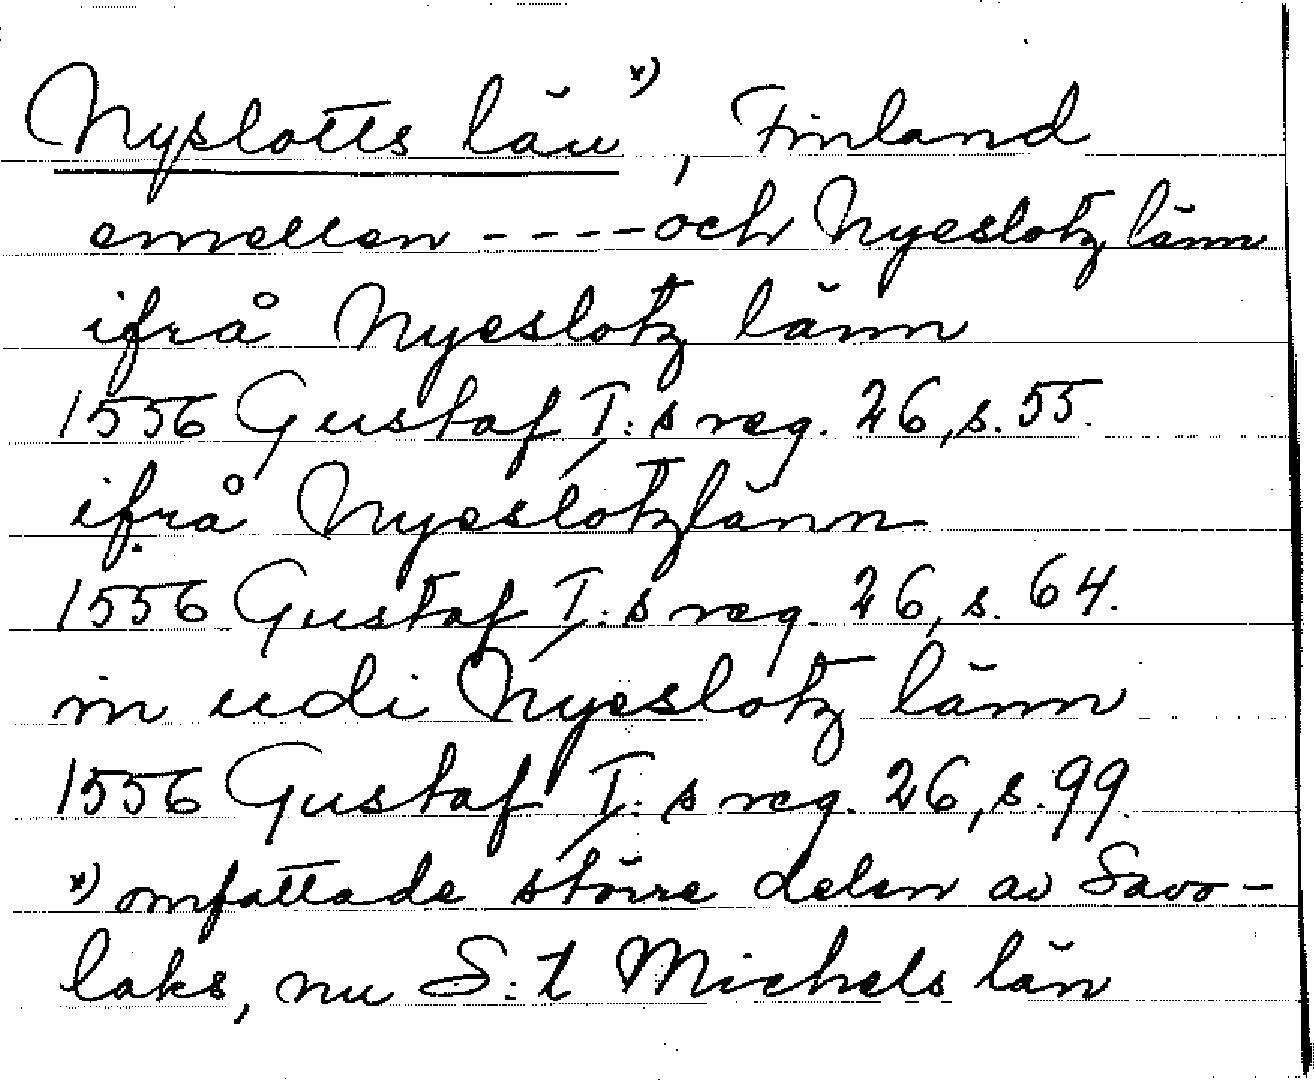 Nyslotts län x), Finland
emellen ---- och Nyeslotz länn
ifrå Nyeslotz länn
1556 Gustaf I:s reg. 26, s. 55.
ifrå Nyeslotzlänn
1556 Gustaf I:s reg. 26, s. 64.
in udi Nyeslotz länn
1556 Gustaf I:s reg. 26, s. 99.
x) omfattade större delen av Savo-
laks, nu S:t Michels län